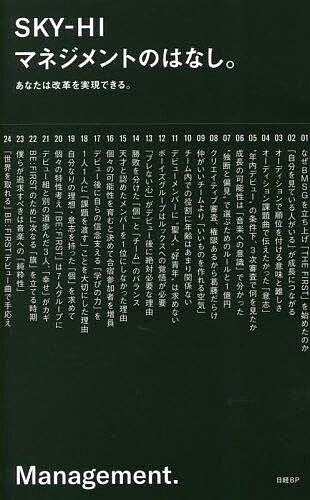 SKY-HI
マネジメントのはなし。
あなたは改革を実現できる。
01 なぜBMSGを立ち上げ「THE FIRST」を始めたのか
02 「自分を見ている人がいる」が成長につながる
03 オーディションで順位を付ける意味と難しさ
04 オーディション課題曲で伝えたかった「意志」
05 「年内デビュー」条件下、3次審査で何を見たか
06 成長の可能性は「音楽への意識」で分かった
07 “独断と偏見”で選ぶためのルールと1億円
08 クリエイティブ審査、権限あるから葛藤だらけ
09 仲がいいチームより「いいものを作れる空気」
10 チーム内での役割に年齢はあまり関係ない
11 デビューメンバーに「聖人」「好青年」は求めない
12 ボーイズグループはルックスへの覚悟が必要
13 「ブレない心」がデビュー後に絶対必要な理由
14 勝敗を分けた「個」と「チーム」のバランス
15 天才と認めたメンバーを1位にしなかった理由
16 個人の可能性を育むと決めて合宿参加者を増員
17 デビュー後に自らの信念支える「学びの力」を
18 1人1人に「課題を」大切にした理由
19 自分なりの理想・意志を持った「個」を求めて
20 個々の特性考え「BE:FIRST」は7人グループに
21 デビュー組と別の道歩んだ3人、「幸せ」がカギ
22 BE:FIRSTのために次なる「旗」を立てる時期
23 僕らが追求すべきは音楽への「純粋性」
24 「世界を取れる」BE:FIRSTデビュー曲で手応え
Management.
日経BP